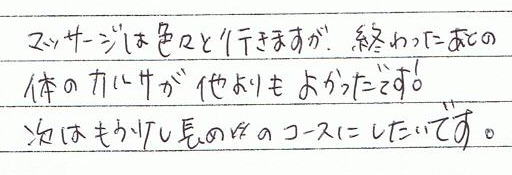 マッサージは色々と行きますが、終わったあとの
体のカルサが他よりもよかったです!
次はもう少し長めのコースにしたいです。